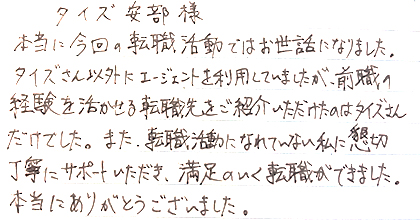 タイズ 安部 様
本当に今回の転職活動ではお世話になりました。
タイズさん以外にエージェントを利用していましたが、前職の
経験を活かせる転職先をご紹介いただけたのはタイズさん
だけでした。また、転職活動になれていない私に懇切
丁寧にサポートいただき、満足のいく転職ができました。
本当にありがとうございました。